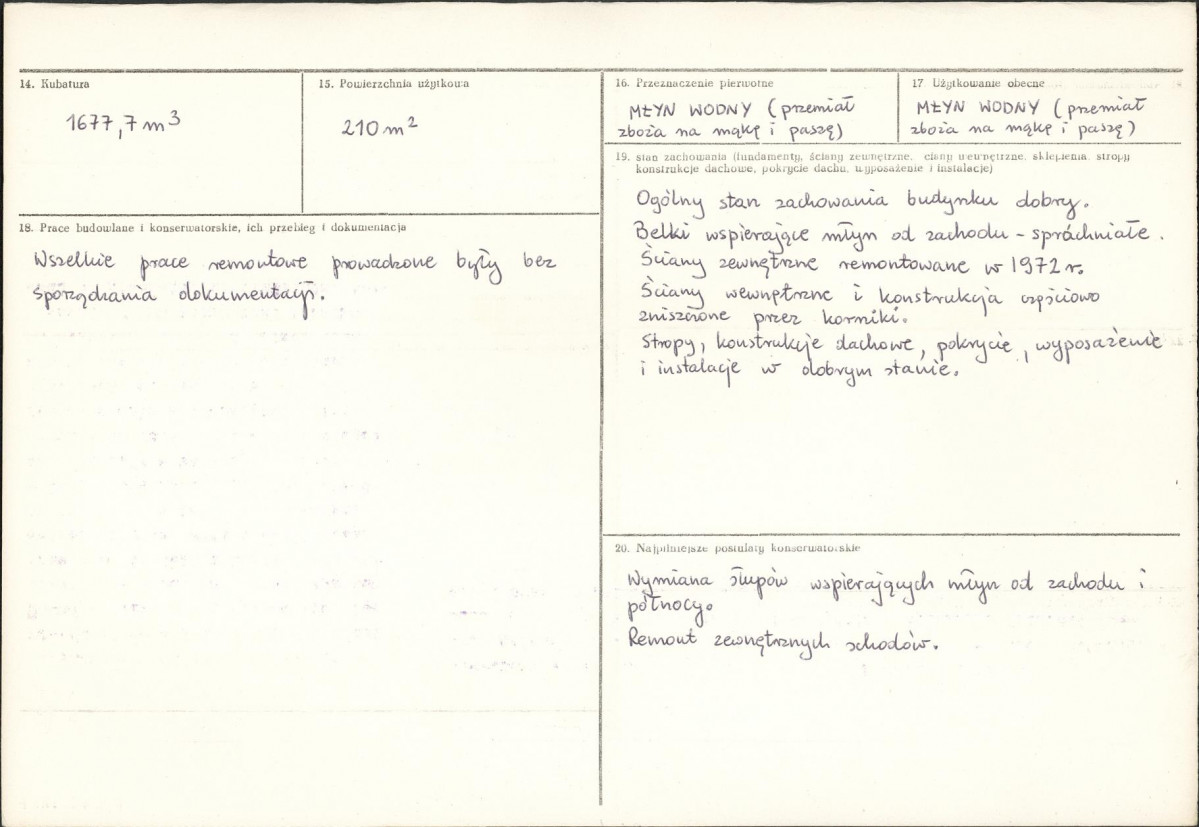 14. Kubatura
1677,7 m³
15. Powierzchnia użytkowa
210 m²
16. Przeznaczenie pierwotne
MŁYN WODNY (przemiał
zboża na mąkę i paszę)
17. Użytkowanie obecne
MŁYN WODNY (przemiał
zboża na mąkę i paszę)
18. Prace budowlane i konserwatorskie, ich przebieg i dokumentacja
Wszelkie prace remontowe prowadzone były bez
sporządzania dokumentacji.
19. stan zachowania (fundamenty, ściany zewnętrzne, ciany wewnętrzne, sklepienia, stropy
konstrukcje dachowe, pokrycie dachu, wyposażenie i instalacje)
Ogólny stan zachowania budynku dobry.
Belki wspierające młyn od zachodu – spráchniałe.
Ściany zewnętrzne remontowane w 1972 r.
Ściany wewnętrzne i konstrukcja częściowo
zniszczone przez korniki.
Stropy, konstrukcje dachowe, pokrycie, wyposażenie
i instalacje w dobrym stanie.
20. Najpilniejsze postulaty konserwatorskie
Wymiana słupów wspierających młyn od zachodu i
północy.
Remont zewnętrznych schodów.